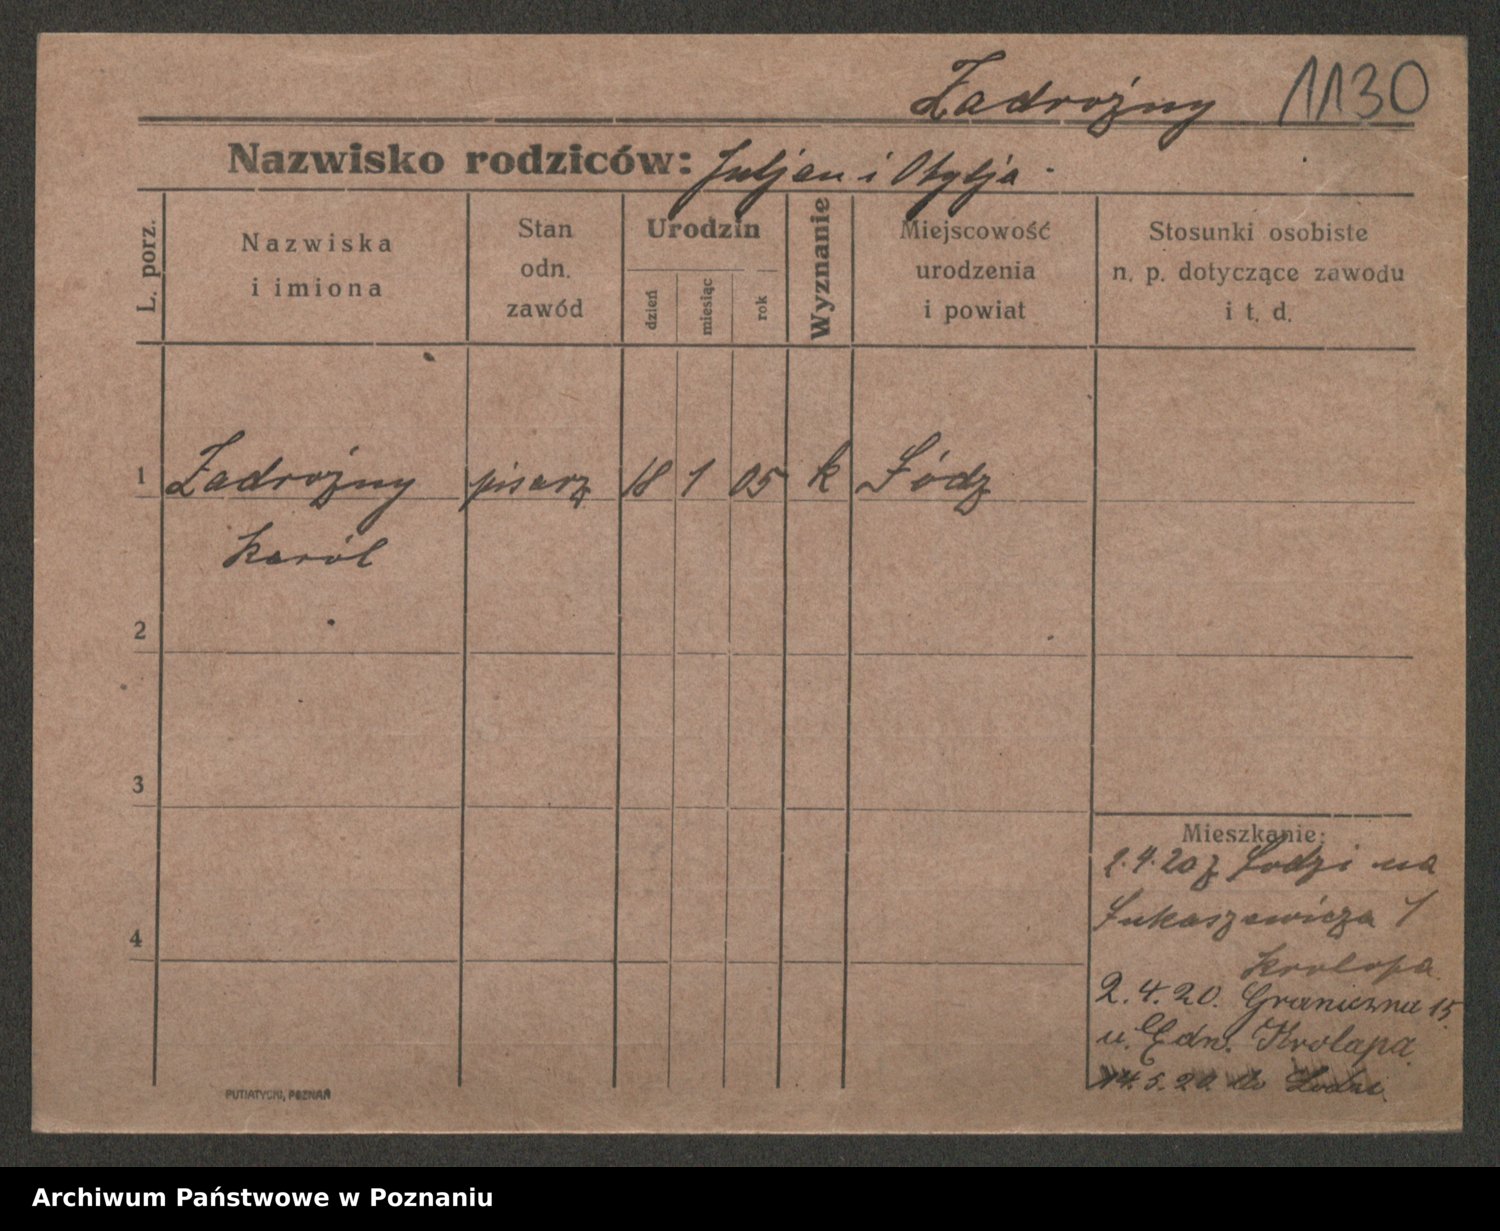 Zadrożny 1130
Nazwisko rodziców: Juljan i Otylja
L. porz.
Nazwiska
i imiona
Stan
odn.
zawód
Urodzin
dzień
miesiąc
rok
Wyznanie
Miejscowość
urodzenia
i powiat
Stosunki osobiste
n. p. dotyczące zawodu
i t. d.
1 Zadrożny pisarz 18 1 05 k Łódz
Karól
2
3
4
Mieszkanie:
2.4.20 z Łodzi na
Łukaszewicza 1
Krolopa
2.4.20. Graniczna 15
u. Edn. Krolapa
14.5.20 do Łodzi
PUTIATYCKI, POZNAŃ
Archiwum Państwowe w Poznaniu